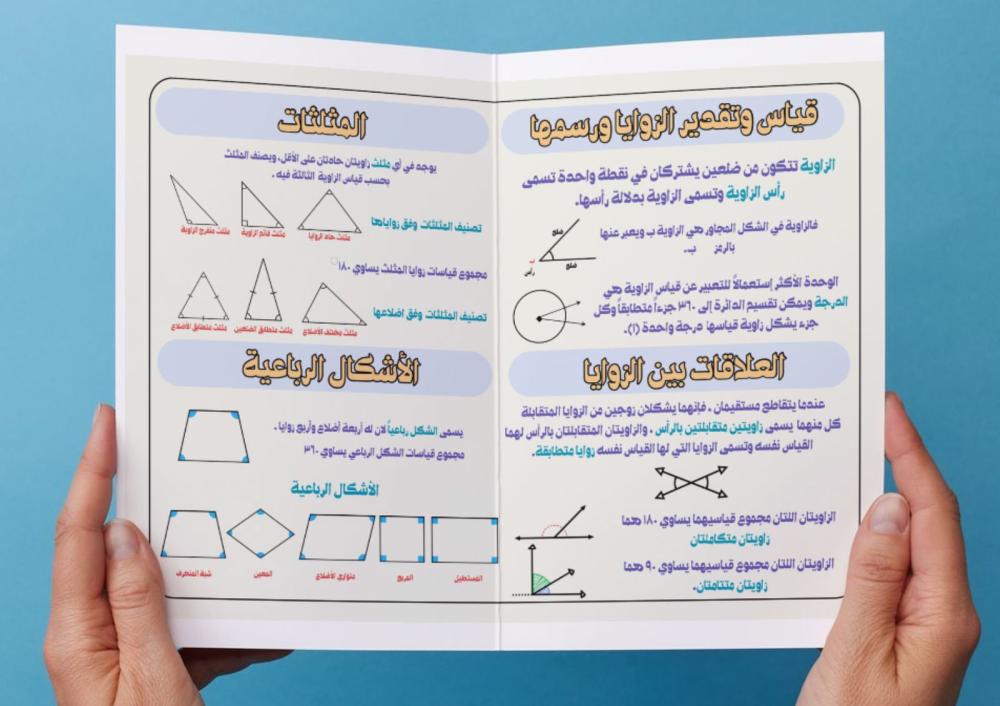 قياس وتقدير الزوايا ورسمها
الزاوية تتكون من ضلعين يشتركان في نقطة واحدة تسمى
رأس الزاوية وتسمى الزاوية بدلالة رأسها.
فالزاوية في الشكل المجاور هي الزاوية ب ويعبر عنها
بالرمز ب.
ضلع
ب
ضلع
رأس
الوحدة الأكثر إستعمالاً للتعبير عن قياس الزاوية هي
الدرجة ويمكن تقسيم الدائرة إلى ٣٦٠ جزءاً متطابقاً وكل
جزء يشكل زاوية قياسها درجة واحدة (١).
العلاقات بين الزوايا
عندما يتقاطع مستقيمان ، فإنهما يشكلان زوجين من الزوايا المتقابلة
كل منهما يسمى زاويتين متقابلتين بالرأس ، والزاويتان المتقابلتان بالرأس لهما
القياس نفسه وتسمى الزوايا التي لها القياس نفسه زوايا متطابقة.
الزاويتان اللتان مجموع قياسيهما يساوي ١٨٠ هما
زاويتان متكاملتان
الزاويتان اللتان مجموع قياسيهما يساوي ٩٠ هما
زاويتان متتامتان.
المثلثات
يوجد في أي مثلث زاويتان حادتان على الأقل، ويصنف المثلث
بحسب قياس الزاوية الثالثة فيه .
تصنيف المثلثات وفق زواياها
مثلث حاد الزوايا
مثلث قائم الزاوية
مثلث منفرج الزاوية
مجموع قياسات زوايا المثلث يساوي ١٨٠
تصنيف المثلثات وفق اضلاعها
مثلث مختلف الأضلاع
مثلث متطابق الضلعين
مثلث متطابق الأضلاع
الأشكال الرباعية
يسمى الشكل رباعياً لان له أربعة أضلاع وأربع زوايا .
مجموع قياسات الشكل الرباعي يساوي ٣٦٠
الأشكال الرباعية
المستطيل
المربع
متوازي الأضلاع
المعين
شبة المنحرف